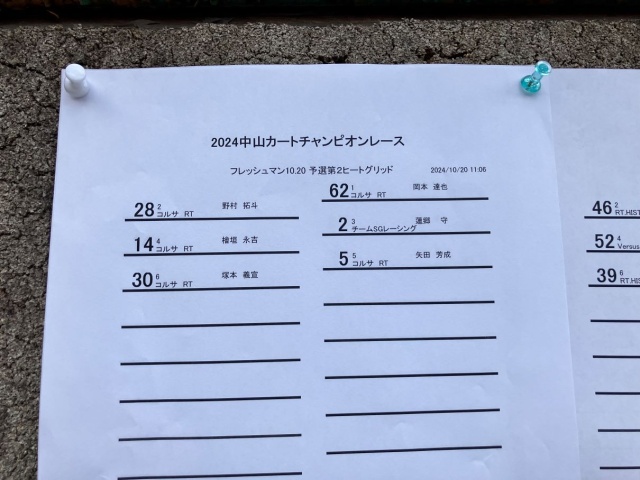 2024中山カートチャンピオンレース
フレッシュマン10.20 予選第2ヒートグリッド
2024/10/20 11:06
62 1 岡本 達也
コルサ RT
28 2 野村 拓斗
コルサ RT
2 3 蓮郷 守
チームSGレーシング
14 4 檜垣 永吉
コルサ RT
5 5 矢田 芳成
コルサ RT
30 6 塚本 義宣
コルサ RT
46 2
RT.HIST
52 4
Versus
39 6
RT.HIS